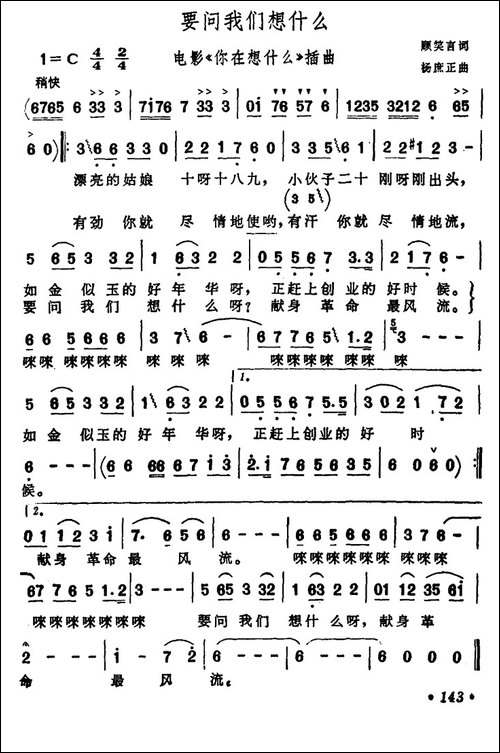 要问我们想什么
1=C 4/4 2/4
电影《你在想什么》插曲
顾笑言词
杨庶正曲
稍快
(6765 6 33 3 | 7176 7 33 3 | 01 76 57 6 | 1235 3212 6 65 |
6 0) :3 6 6 3 3 0 | 2 2 1 7 6 0 | 3 3 5 6 1 0 | 2 2 #1 2 3 |
漂亮的姑娘 十呀十八九, 小伙子二十 刚呀刚出头,
(3 5)
有劲你就 尽情地使哟, 有汗你就尽情地流,
5 653 32 | 1 632 2 | 0 5567 3.3 | 2 176 - |
如金似玉的好年华呀, 正赶上创业的好时候。
要问我们 想什么呀? 献身革命 最风流。
66 5666 | 3 7 6 - | 67765 1.2 | 3 - - - |
唻唻唻唻唻唻 唻唻唻 唻唻唻唻唻唻唻 唻
1.
5 65332 | 1 63 2 2 | 055675.5 | 3021 72 |
如金似玉的好年华呀, 正赶上创业的好 时
6 - - (6 | 6 6 66 6713 | 2.1 765356 | 6 0 6 0) :
候。
2.
011231 | 7. 656 | 6 - - - | 665666 |
献身革命最 风流。 唻唻唻唻唻唻唻
6776 51.2 | 3 - - - | 5653 32 | 1 6322 | 0112 3561 |
唻唻唻唻唻唻唻 要问我们 想什么呀, 献身革
2 - - - | 1 - 7 2 | 6 - - - | 6 - - - | 6 0 0 0
命 最风流。
· 143 ·